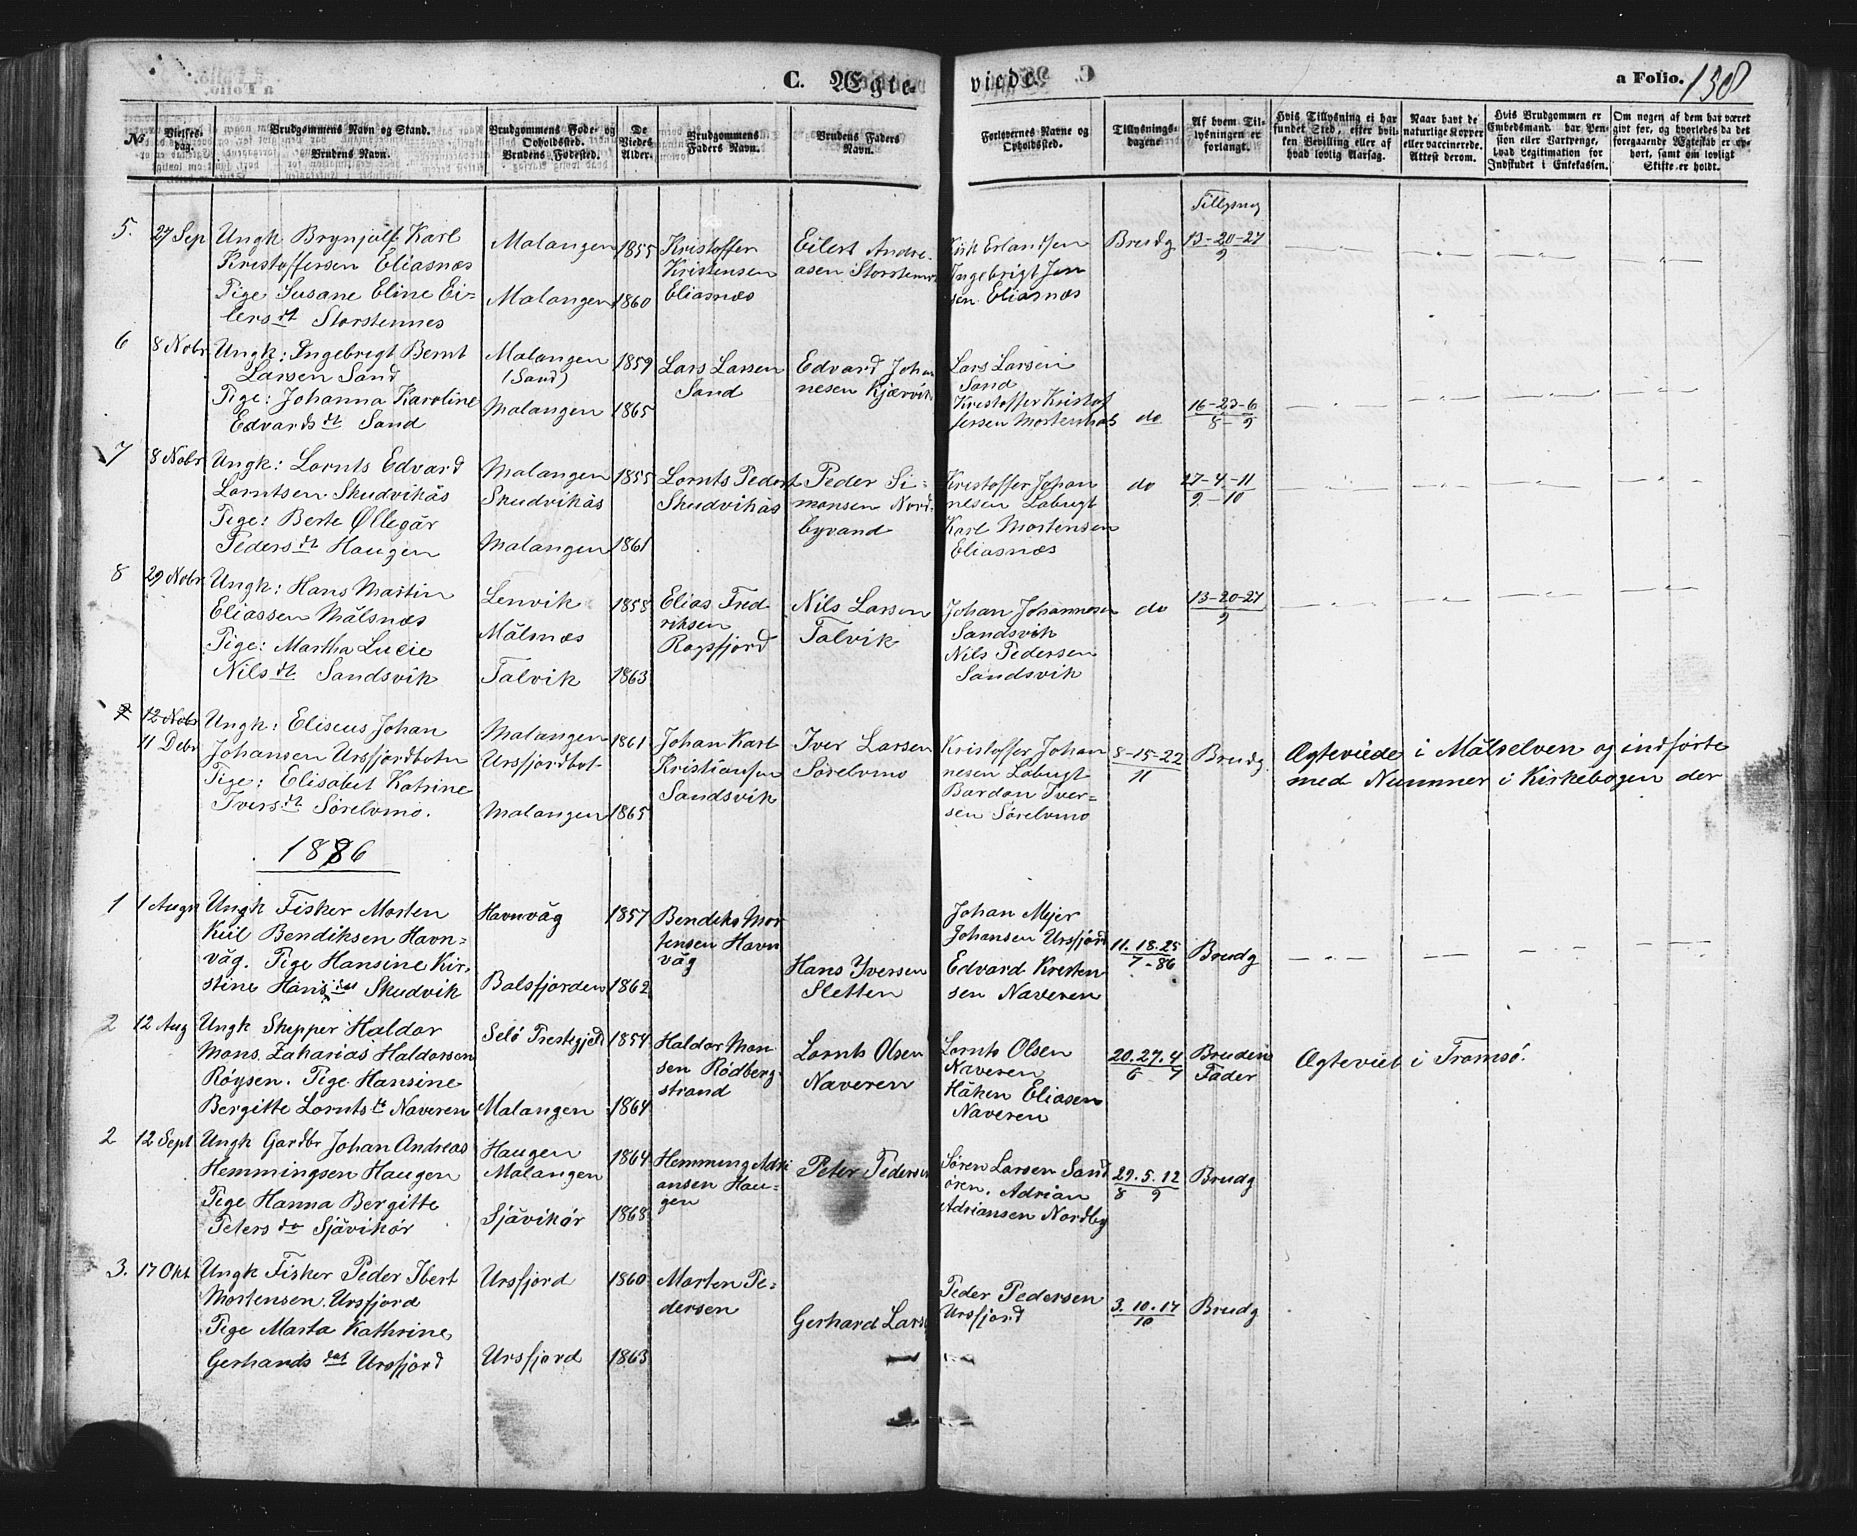 C. Ægte-
viede.
a Folio. 138
No
Vielses-
dag.
Brudgommens Navn og Stand.
Brudens Navn.
Brudgommens Føde- og
Opholdssted.
Brudens Fødested.
De
Viedes
Alder.
Brudgommens
Faders Navn.
Brudens Faders
Navn.
Forlovernes Navne og
Opholdssted.
Tillysnings-
dagene.
Af hvem Til-
lysningen er
forlangt.
Hvis Tillysning ei har
fundet Sted, efter hvil-
ken Bevilling eller af
hvad lovlig Aarsag.
Naar havt de
naturlige Kopper
eller vaccinerede.
Attest derom.
Hvis Brudgommen er
Embedsmand, har Pen-
sion eller Vartpenge,
hvad Legitimation for
Indskudet i Enkekassen.
Om nogen af dem har været
gift før, og hvorledes da det
foregaaende Ægteskab er op-
hørt, samt om lovligt
Skifte er holdt.
5.
27 Sep
Ungk Brynjulf Karl
Kristoffersen Eliasnæs
Pige Susane Eline Ei-
lers dt Storstennes
Malangen
Malangen
1855
1860
Kristoffer
Kristensen
Eliasnæs
Eilert Andre-
asen Storstennes
Erik Erlandsen
Ingebrigt Jen
sen Eliasnæs
Brudg
Tillysning
13-20-27
9
6
8 Nobr
Ungk: Ingebregt Bernt
Larsen Sand
Pige: Johanna Karoline
Edvards dt Sand
Malangen
(Sand)
Malangen
1859
1865
Lars Larsen
Sand
Edvard Johan
nesen Kjærvik
Lars Larsen
Sand
Kristoffer Kristof
fersen Mortensnæs
do
16-23-6
8-9
7
8 Nobr
Ungk: Lornts Edvard
Lorntsen Skudvikås
Pige: Berte Øllegår
Peders dt Haugen
Malangen
Skudvikås
Malangen
1855
1861
Lornts Peders
Skudvikås
Peder Si-
monsen Nord-
byvand
Kristoffer Johan
nesen Labugt
Karl Mortensen
Eliasnæs
do
27-4-11
9-10
8
29 Nobr
Ungk: Hans Martin
Eliassen Målsnæs
Pige: Martha Lucie
Nils dt Sandsvik
Lenvik
Målsnæs
Talvik
1858
1863
Elias Fred
riksen
Rossfjord
Nils Larsen
Talvik
Johan Johannesen
Sandsvik
Nils Pedersen
Sandsvik
do
13-20-27
9
12 Nobr
11 Debr
Ungk: Eliseus Johan
Johansen Ursfjordbotn
Pige: Elisabet Katrine
Ivers dt Sørelvmo.
Malangen
Ursfjordbot-
Malangen
1861
1865
Johan Karl
Kristiansen
Sandsvik
Iver Larsen
Sørelvmo
Kristoffer Johan
nesen Labugt
Bardon Iver-
sen Sørelvmo
8-15-22
11
Brudg.
Ægteviede i Målselven og indførte
med Nummer i Kirkebogen der
1886
1
1 Augu
Ungk Fisker Morten
Kiil Bendiksen Havn-
våg. Pige Hansine Kir-
stine Hans dat Skudvik
Havnvåg
Balsfjorden
1857
1862
Bendiks Mor
tensen Havn
våg
Hans Yversen
Sletten
Johan Mejer
Johansen Ursfjord
Edvard Kresten
sen Naveren
11.18.25
7-86
Brudg
2
12 Aug
Ungk Skipper Haldor
Mons. Zaharias Haldorsen
Røysen. Pige Hansine
Bergitte Lornts dt Naveren
Selö Prestegjeld
Malangen
1854
1864
Haldor Mon
sen Rödberg
strand
Lornts Olsen
Naveren
Lornts Olsen
Naveren
Håken Eliasen
Naveren
20.27.4
6 7
Brudens
Fader
Ægteviet i Tromsö.
2
12 Sept
Ungk Gardbr Johan Andreas
Hemmingsen Haugen
Pige Hanna Bergitte
Peters dt Sjåvikör
Haugen
Malangen
Sjåvikör
1864
1868
Hemming Adri
ansen Hau-
gen
Peter Pedersen
Sören Larsen Sand
ören. Adrian
Adriansen Nordby
29.5.12
8 9
Brudg
3.
17 Okt
Ungk Fisker Peder Ibert
Mortensen. Ursfjord
Pige Marta Kathrine
Gerhards dat Ursfjord
Ursfjord
Ursfjord
1860
1863
Morten Pe-
dersen
Gerhard Lars
Peder Pedersen
Ursfjord
3.10.17
10
Brudg